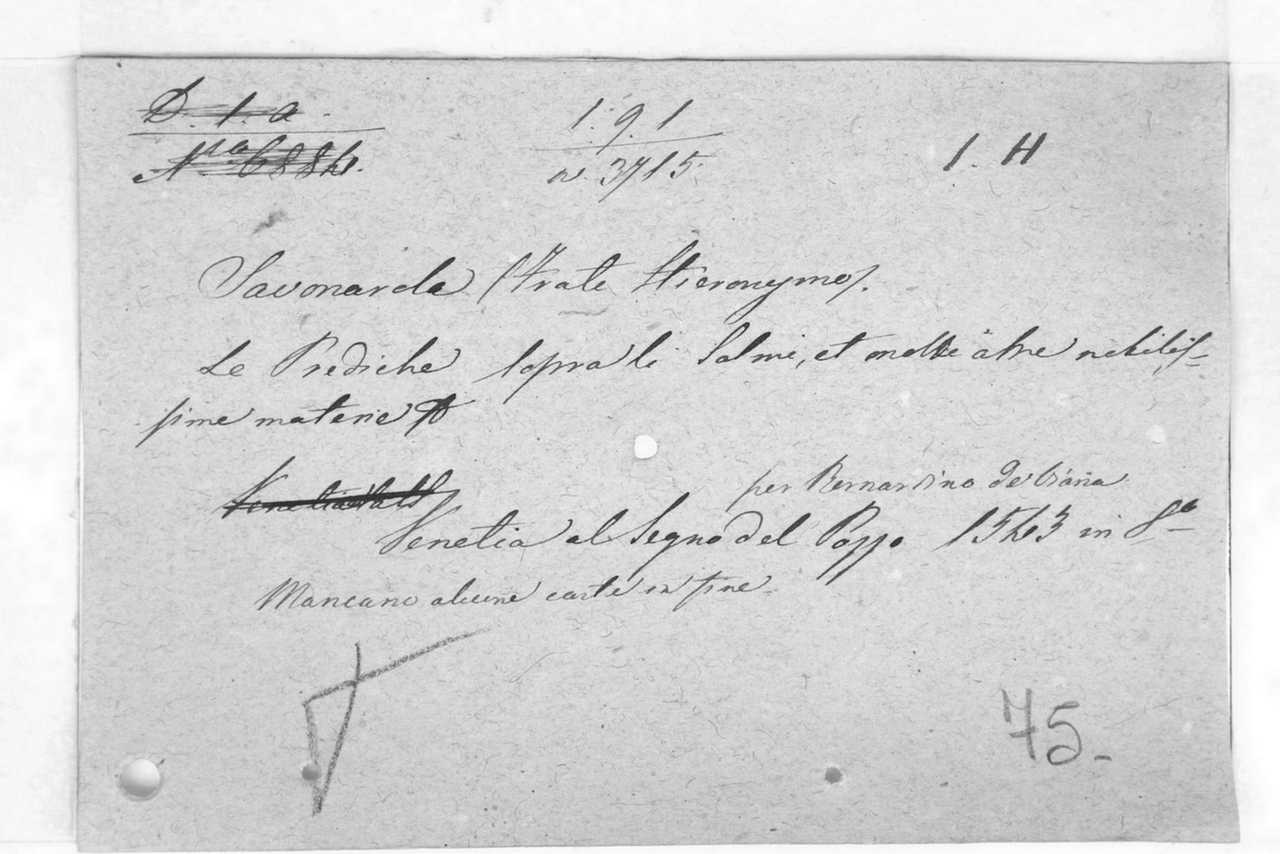 D. 1. a.
1. 9. 1
N.ro 6884.
n. 3715
1. H
Savonarola (Frate Hieronymo).
Le Prediche sopra li Salmi, et molte altre nobilis-
sime materie
Venetia al
per Bernardino de Viana
Venetia al Segno del Pozzo 1543 in 8.o
Mancano alcune carte in fine.
75.-